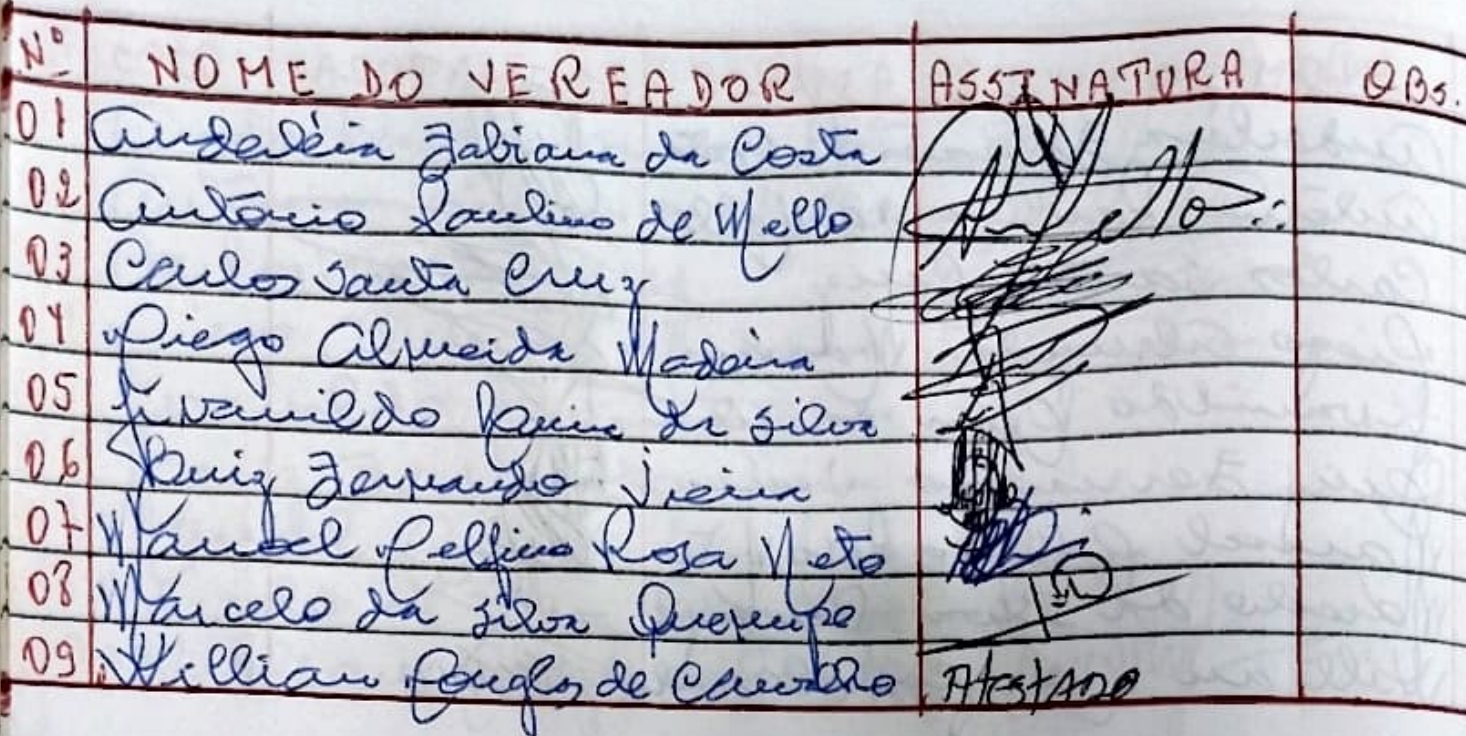 Nº NOME DO VEREADOR ASSINATURA OBS.
01 Andreléia Fabiana da Costa
02 Antônio Paulino de Mello
03 Carlos Santa Cruz
04 Diego Almeida Madeira
05 Juvanildo da Silva
06 Luiz Fernando Vieira
07 Manoel Delfino Rosa Neto
08 Marcelo da Silva
09 Willian Douglas de Carvalho Atestado